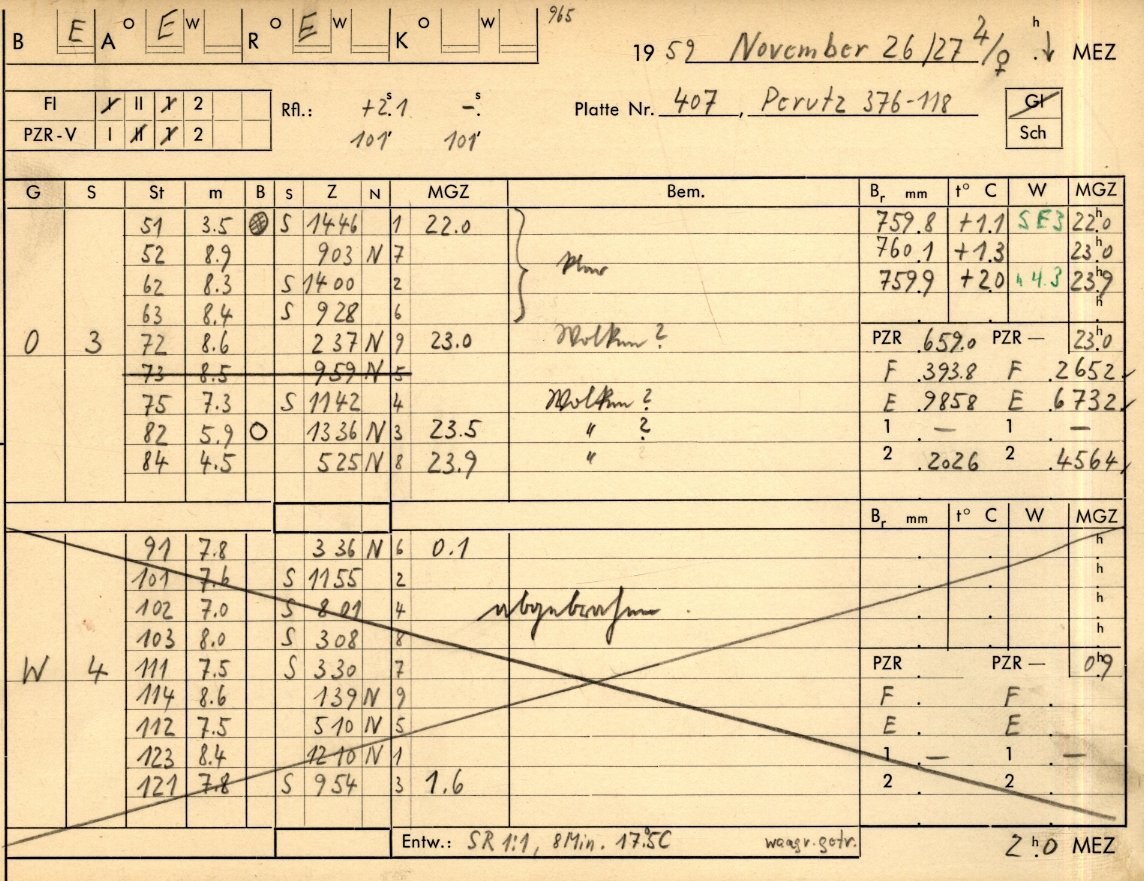 965
B E A O E W R O E W K O W
19 59 November 26/27 ♃/♀ h ↓ MEZ
FI I II 1 2 Rfl.: +2ˢ.1 -ˢ. Platte Nr. 407, Perutz 376-118 Gl
PZR-V I II 1 2 101' 101' Sch
G S St m B S Z N MGZ Bem. Bᵣ mm t° C W MGZ
51 3.5 S 1446 1 22.0 759.8 +1.1 SE3 22ʰ.0
52 8.9 903 N 7 760.1 +1.3 23ʰ.0
62 8.3 S 1400 2 759.9 +2.0 4.3 23ʰ.9
63 8.4 S 928 6 h
O 3 72 8.6 237 N 9 23.0 Wolken ? PZR .659.0 PZR — 23ʰ.0
73 8.5 959 N 5 F .393.8 F .2652
75 7.3 S 1142 4 Wolken ? E .9858 E .6732
82 5.9 O 1336 N 3 23.5 " ? 1 . — 1 . —
84 4.5 525 N 8 23.9 " ? 2 .2026 2 .4564
Bᵣ mm t° C W MGZ
91 7.8 336 N 6 0.1 h
101 7.6 S 1155 2 h
102 7.0 S 801 4 abgebrochen . h
103 8.0 S 308 8 h
W 4 111 7.5 S 330 7 PZR PZR — 0ʰ.9
114 8.6 139 N 9 F . F .
112 7.5 510 N 5 E . E .
123 8.4 1210 N 1 1 . — 1 . —
121 7.8 S 954 3 1.6 2 . 2 .
Entw.: SR 1:1, 8 Min. 17.5C waagr. getr. 2ʰ.0 MEZ